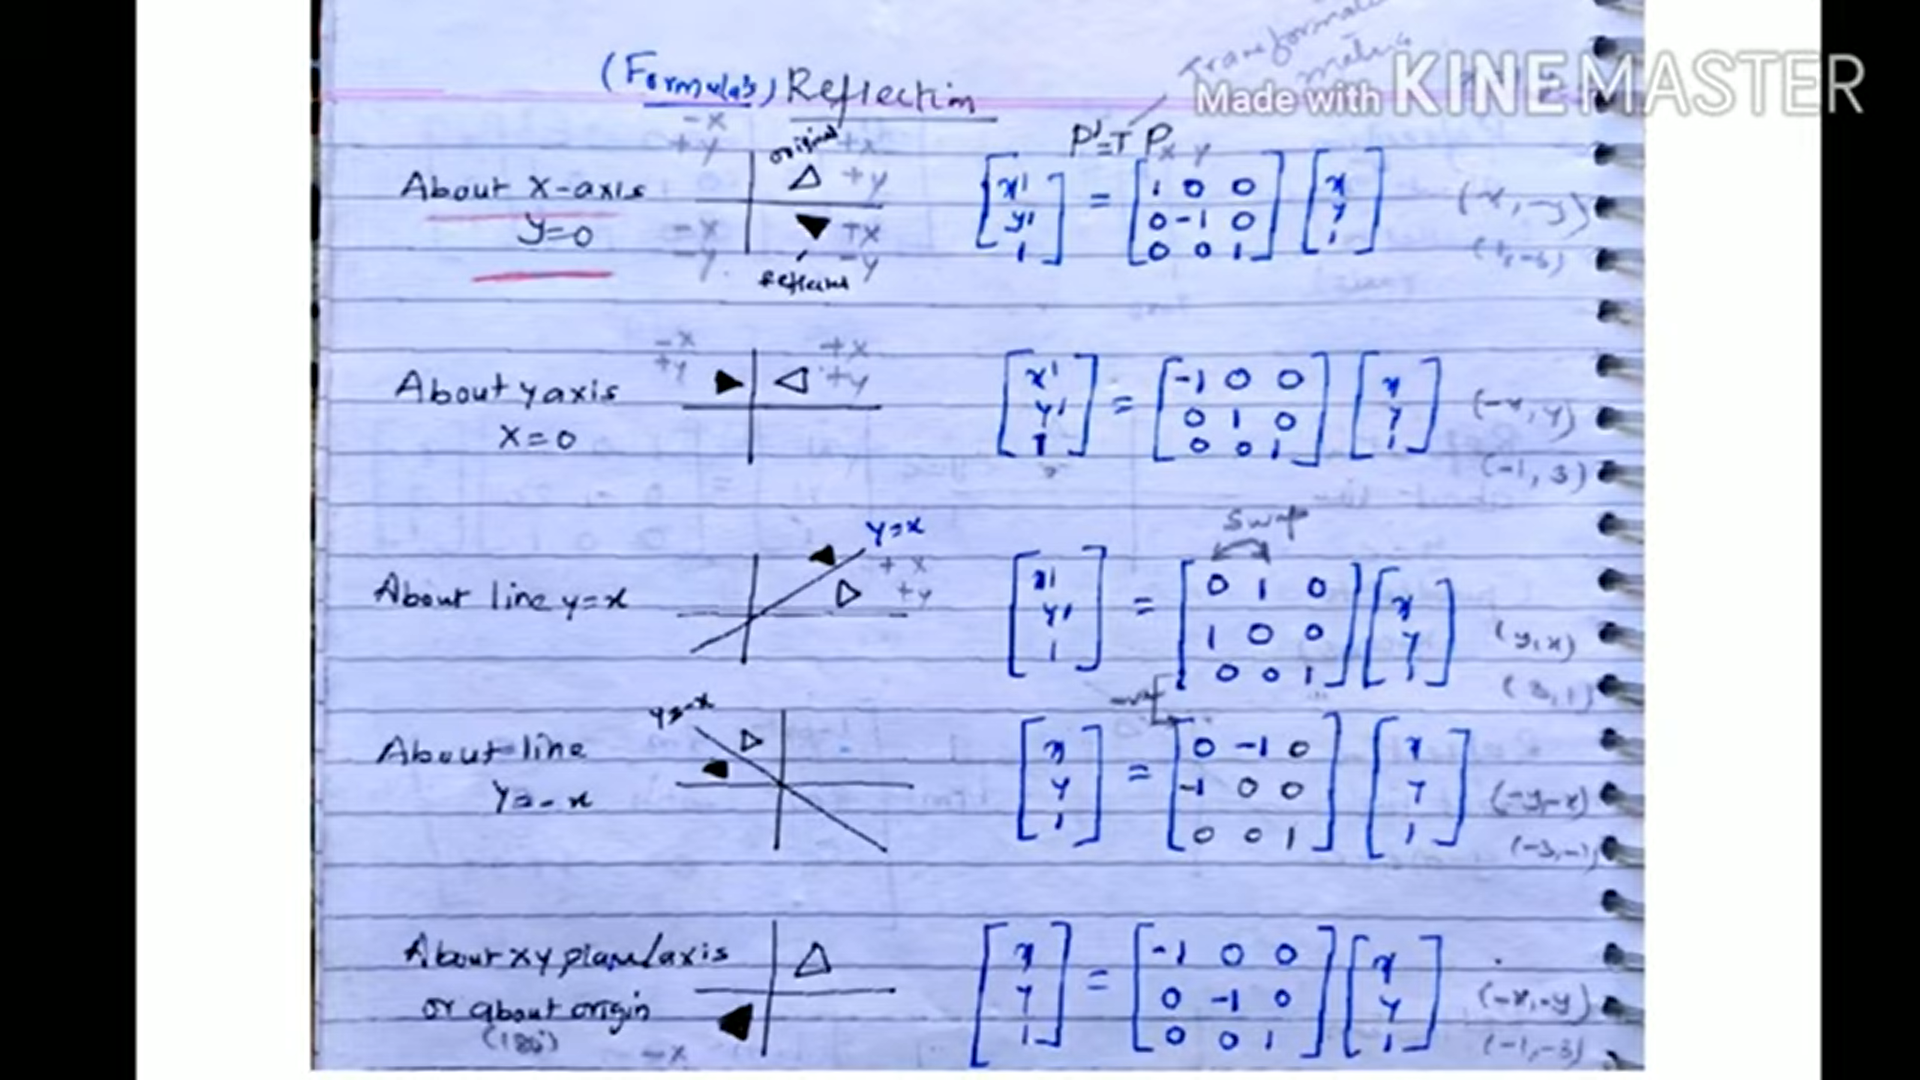 (Formula's) Reflection
Transformati
matrix
Made with KINEMASTER
P'=T P
x y
-x
+y
original +x
+y
About X-axis
y=0
-x
-y
+x
-y
Reflectns
[x' y' 1] = [1 0 0 0 -1 0 0 0 1] [x y 1]
(x, -y)
(1, -3)
About y axis
x=0
-x
+y
+x
+y
[x' y' 1] = [-1 0 0 0 1 0 0 0 1] [x y 1]
(-x, y)
(-1, 3)
About line y=x
y=x
+x
+y
swap
[x' y' 1] = [0 1 0 1 0 0 0 0 1] [x y
(y, x)
(3, 1)
About line
y=-x
y=-x
[x y 1] = [0 -1 0 -1 0 0 0 0 1] [x y 1]
(-y,-x)
(-3,-1)
About xy plane/axis
or about origin
(180°)
-x
[x y 1] = [-1 0 0 0 -1 0 0 0 1] [x y 1]
(-x,-y)
(-1,-3)